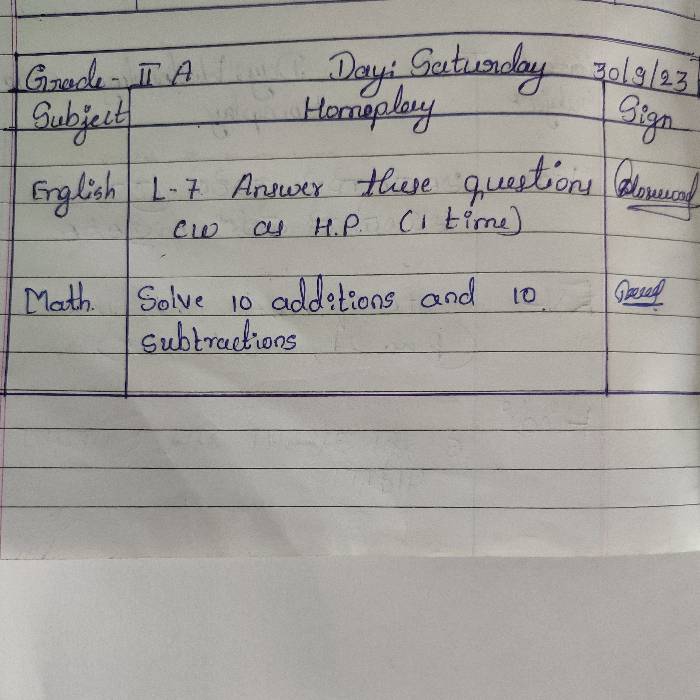 Grade - II A Day: Saturday 30/9/23
Subject Homeplay Sign
English L-7 Answer these questions
cw as H.P. (1 time)
Math. Solve 10 additions and 10
subtractions